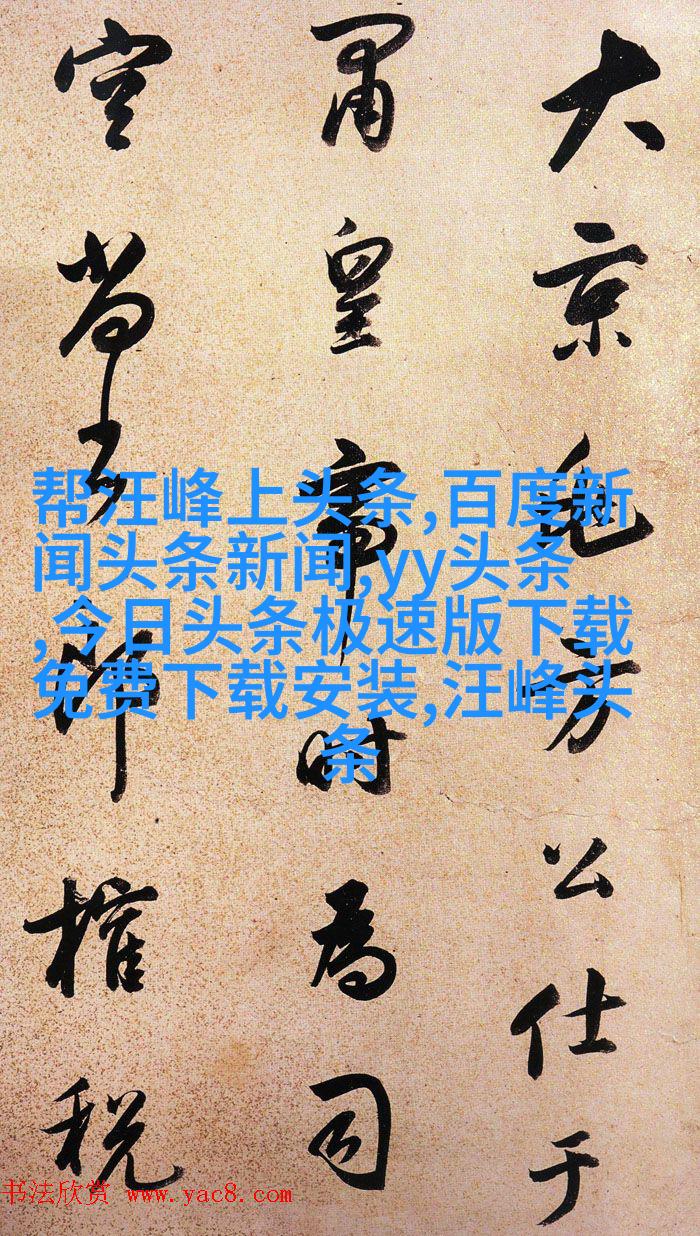 大京兆方公仕于
肅皇帝时為司
空尚书郎榷税
帮汪峰上头条,百度新
闻头条新闻,yy头条
,今日头条极速版下载
免费下载安装,汪峰头
条
书法欣赏 www.yac8.com